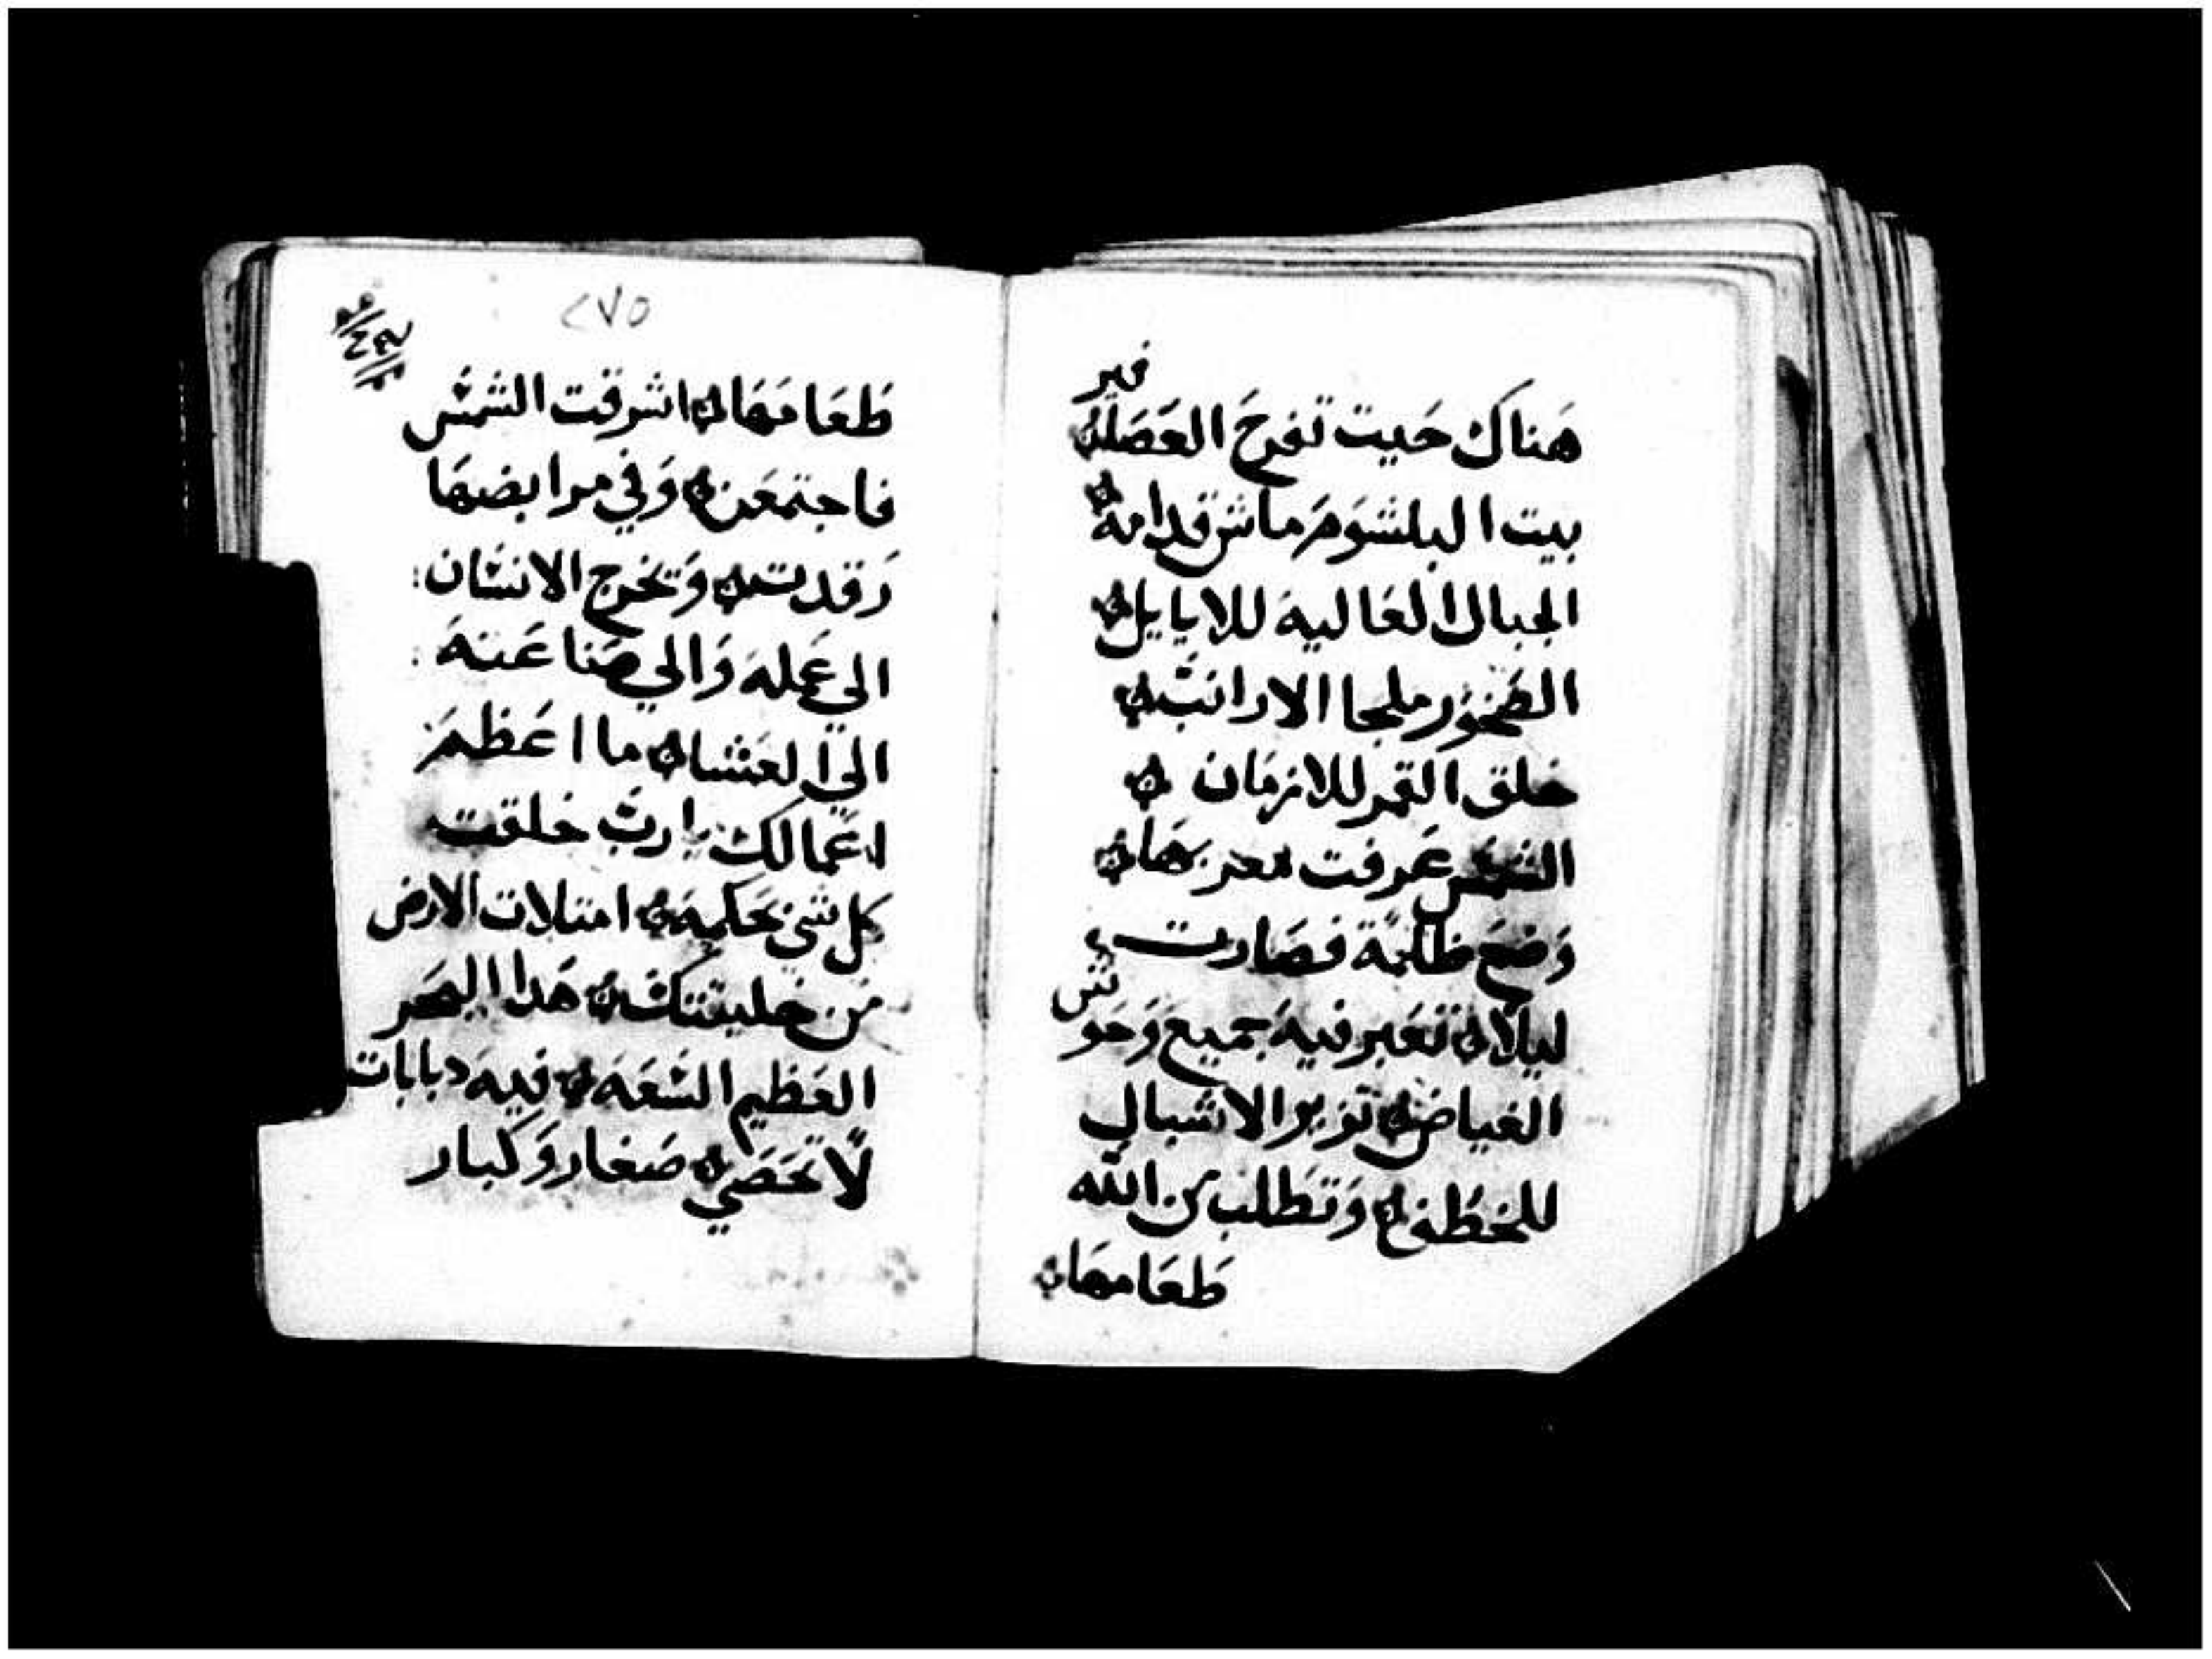 هَناك حَيت تفرخ العَصَافير
بيت البلشوم ماش قدامه
الجبال العَاليه للايايل
الصَخور ملجا الارانب
خلق القمر للازمَان
الشمس عَرفت مغربهَا
وَضعَ ظلمَة فصَارت
ليلا تعَبر فيه جميع وَحوش
الغياض تزير الاشبال
للخطف وَتطلب من الله
طعَامهَا
٢٧٥
طعَامهَا اشرقت الشمس
فاجتمعَن وَفي مرابضهَا
رَقدت وَتخرج الانسَان
الي عَمله وَالي صَناعَته
الي العَشا ما اعَظم
اعَمالك يارب خلقت
كل شي بحَكمه امتلات الارض
من خليقتك هَدا البحَر
العَظيم السَعَه فيه دبابات
لا تحَصَي صَغار وَكبار